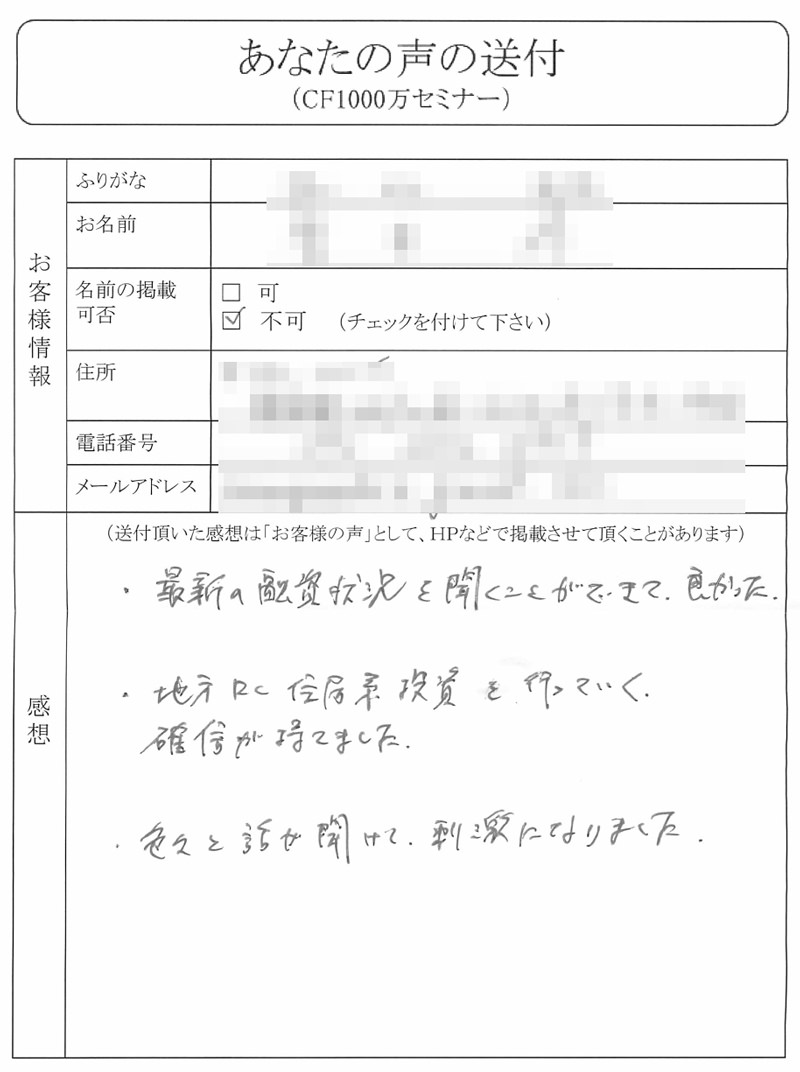 あなたの声の送付
(CF1000万セミナー)
お客様情報
ふりがな
お名前
名前の掲載
可否
□ 可
☑ 不可 (チェックを付けて下さい)
住所
電話番号
メールアドレス
感想
(送付頂いた感想は「お客様の声」として、HPなどで掲載させて頂くことがあります)
・最新の融資状況を聞くことができて、良かった.
・地方RC住居系投資を行っていく.
確信が持てました.
・色々と話が聞けて、刺激になりました.